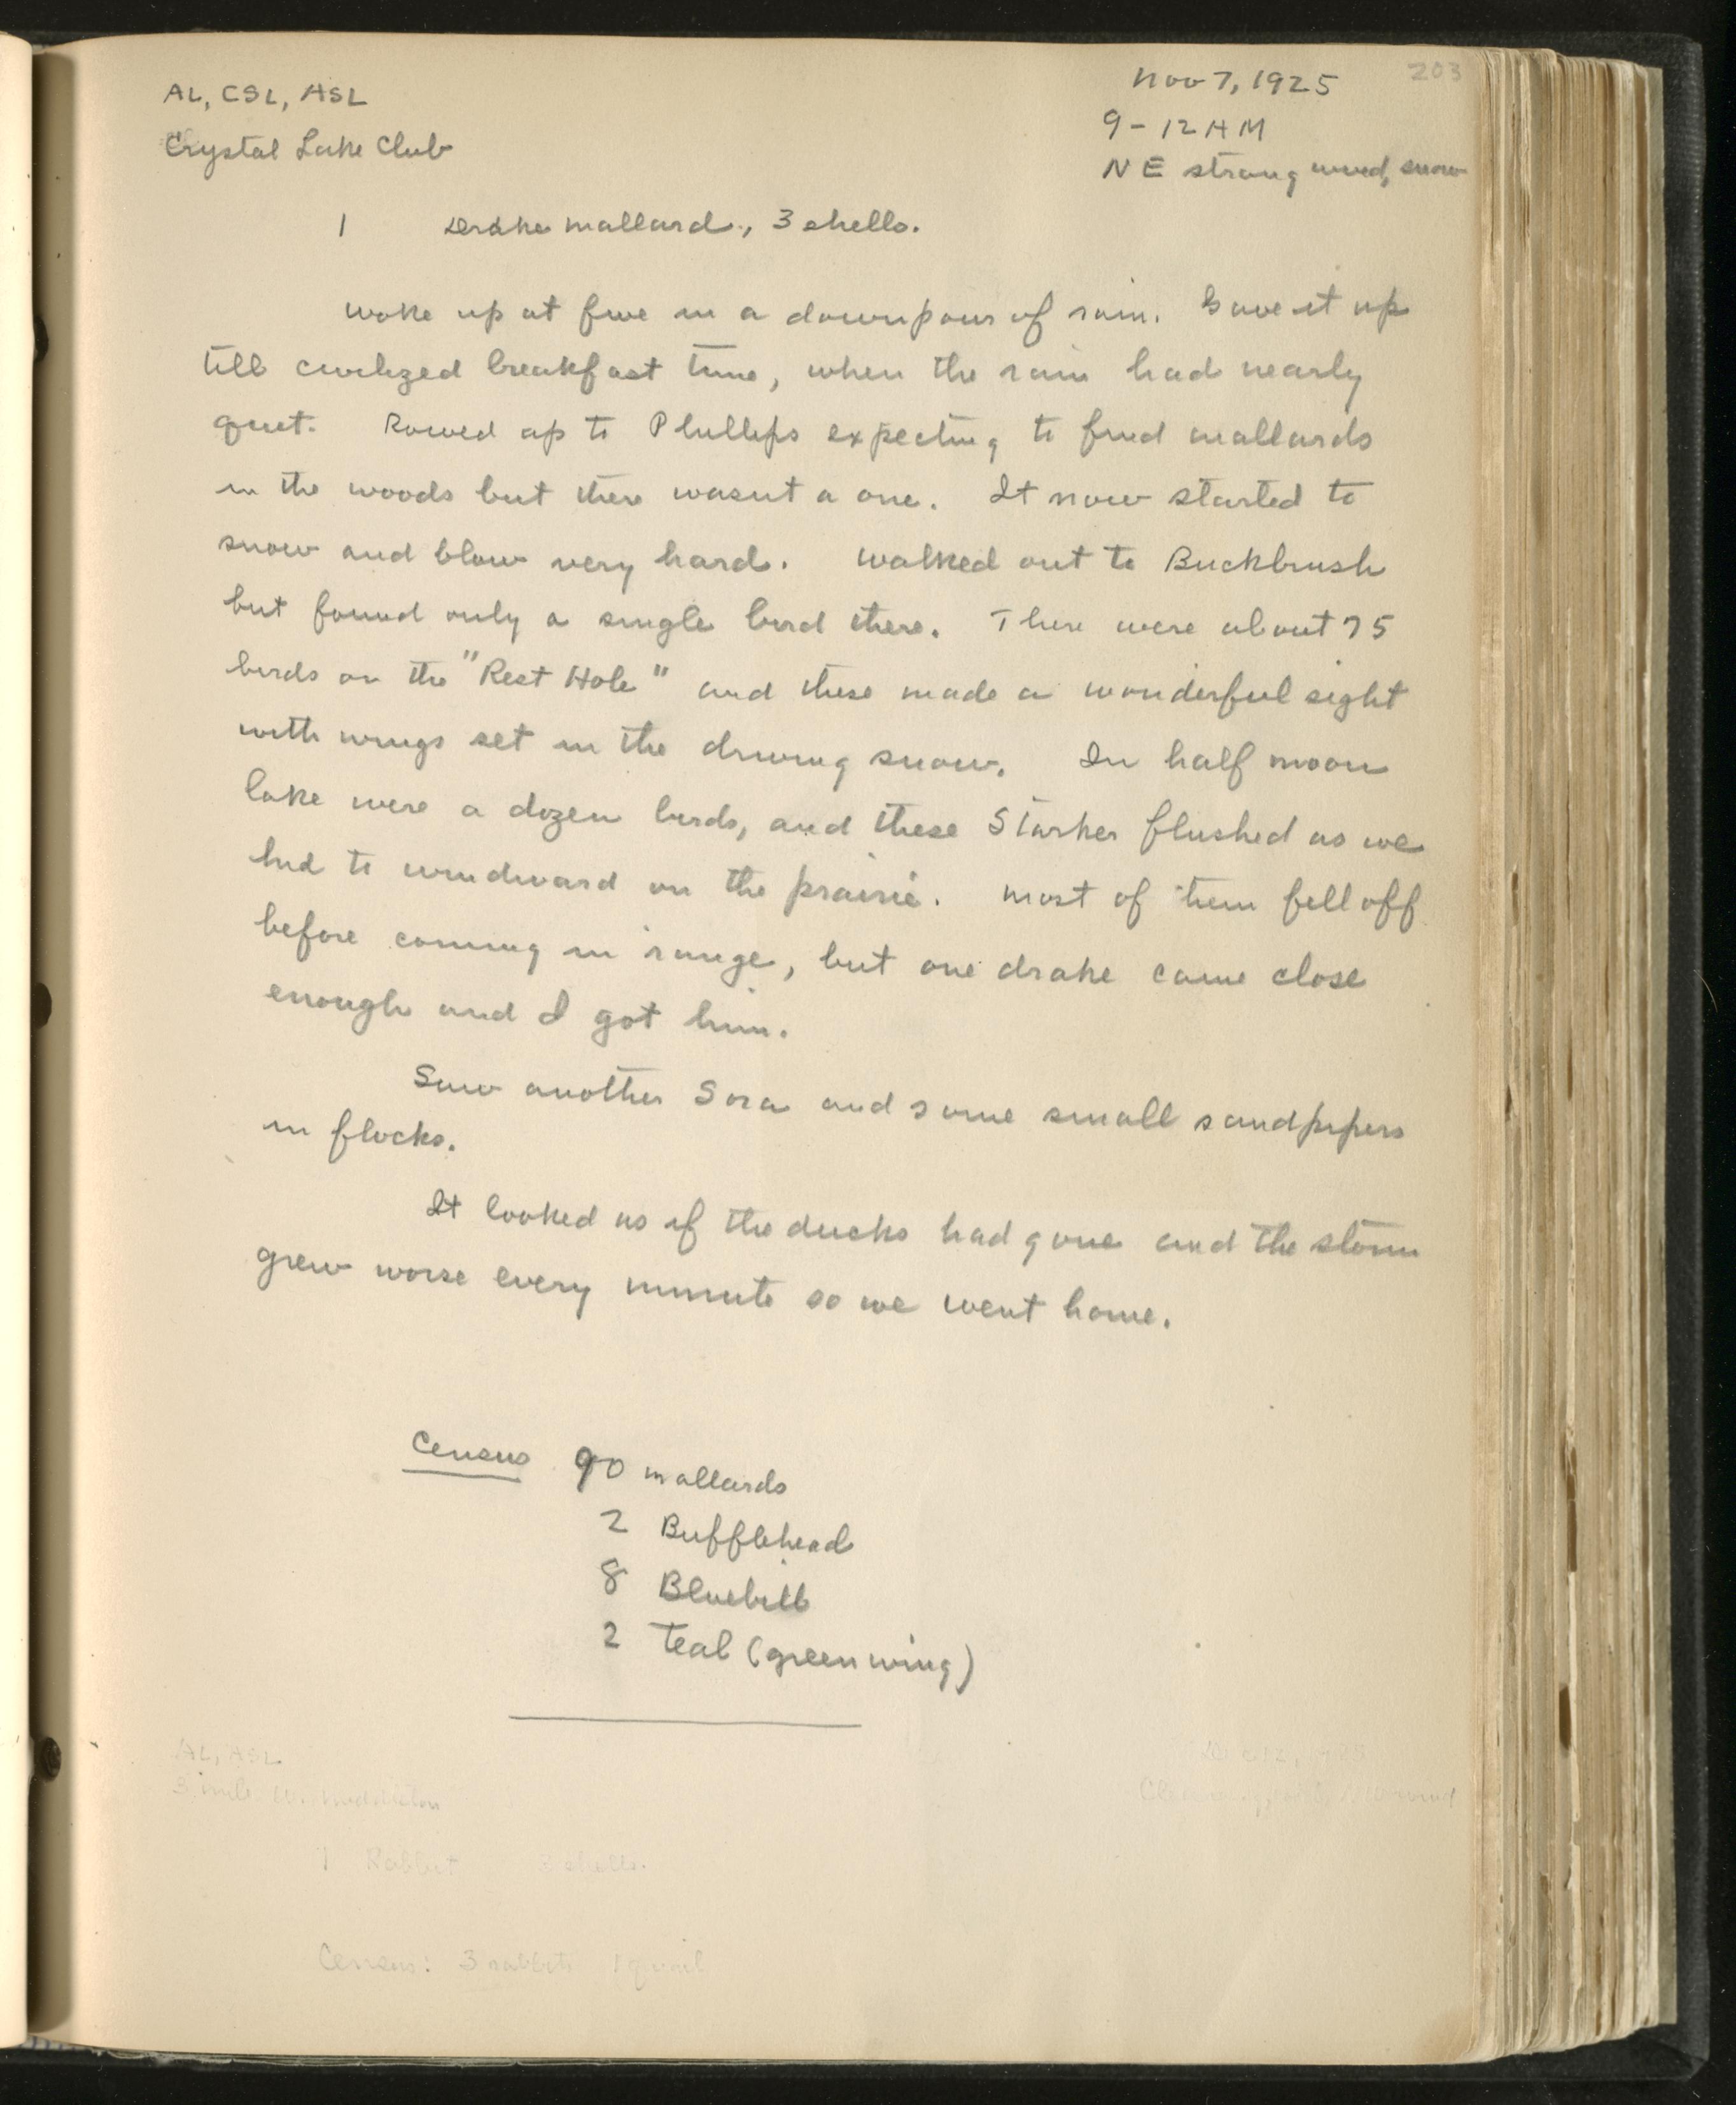 203
AL, CSL, ASL
Nov 7, 1925
Crystal Lake Club
9 - 12 AM
NE strong wind, snow
1 Drake mallard, 3 shells.
Woke up at five in a downpour of rain. Gave it up
till civilized breakfast time, when the rain had nearly
quit. Rowed up to Phillips expecting to find mallards
in the woods but there wasnt a one. It now started to
snow and blow very hard. Walked out to Buckbrush
but found only a single bird there. There were about 75
birds on the "Rest Hole" and these made a wonderful sight
with wings set in the driving snow. In half moon
lake were a dozen birds, and these Starker flushed as we
hid to windward on the prairie. Most of them fell off
before coming in range, but one drake came close
enough and I got him.
Saw another Sora and some small sandpipers
in flocks.
It looked as if the ducks had gone and the storm
grew worse every minute so we went home.
Census 90 mallards
2 Bufflehead
8 Bluebill
2 Teal (greenwing)
AL, ASL
3 mile W. Middleton
1 Rabbit 3 shells.
Census: 3 rabbits 1 quail